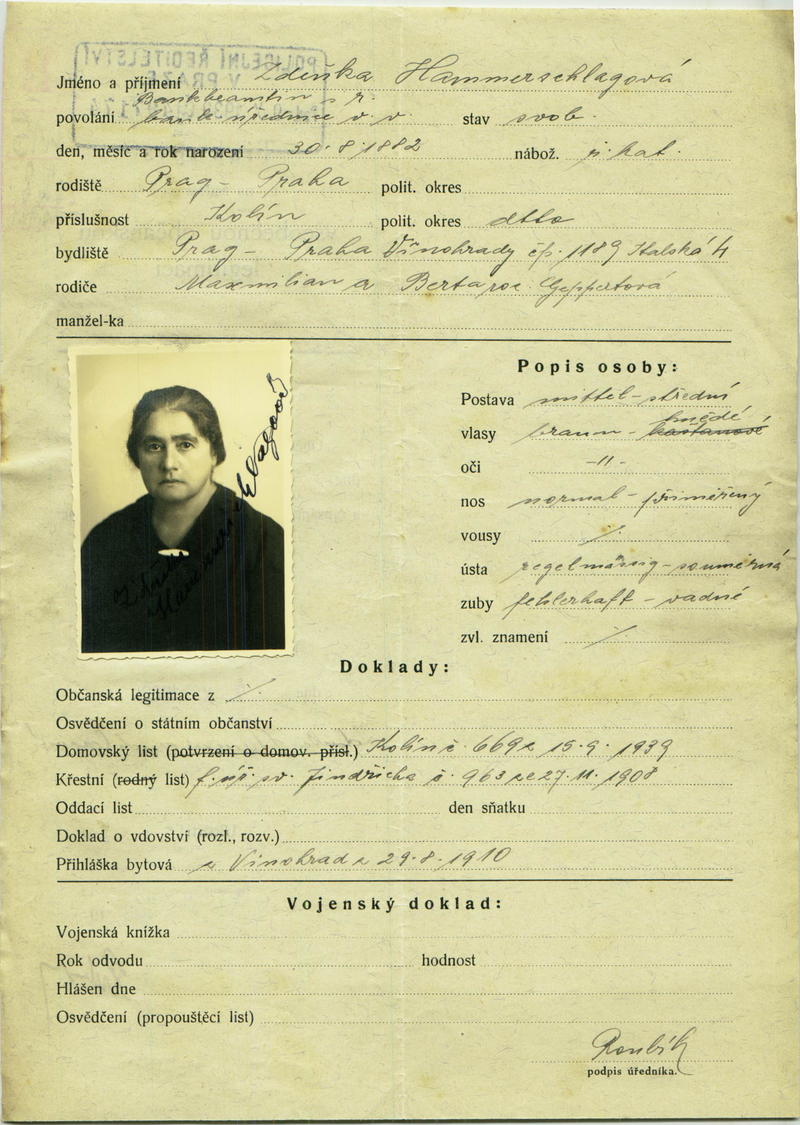 POLICEJNÍ ŘEDITELSTVÍ
V PRAZE
Jméno a příjmení Zdeňka Hammerschlagová
Bankbeamtin i. r.
povolání bank. úřednice v. v. stav svob.
den, měsíc a rok narození 30.8.1882 nábož. ř. kat.
rodiště Prag - Praha polit. okres
příslušnost Kolín polit. okres dtto
bydliště Prag - Praha Vinohrady čp. 1189 Italská 4
rodiče Maxmilian a Berta roz. Geppertová
manžel-ka
Popis osoby:
Postava mittel - střední
hnědé
vlasy braun - kaštanové
oči -"-
nos normal - přiměřený
vousy ./.
ústa regelmässig - souměrná
zuby fehlerhaft - vadné
zvl. znamení ./.
Zdeňka
Hammerschlagová
Doklady:
Občanská legitimace z ./.
Osvědčení o státním občanství
Domovský list (potvrzení o domov. přísl.) Kolín č. 669 z 15.9.1939
Křestní (rodný list) f. úř. sv. Jindřicha č. 963 ze 27.11.1908
Oddací list den sňatku
Doklad o vdovství (rozl., rozv.)
Přihláška bytová z Vinohrad z 29.8.1910
Vojenský doklad:
Vojenská knížka
Rok odvodu hodnost
Hlášen dne
Osvědčení (propouštěcí list)
Roubík
podpis úředníka.